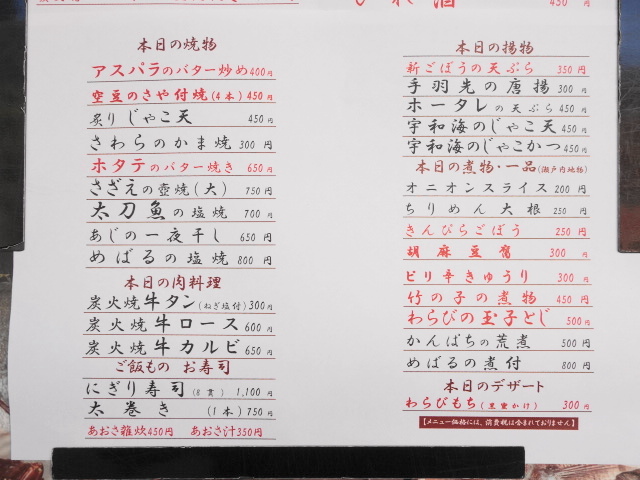 ひれ酒 450円
本日の焼物
アスパラのバター炒め400円
空豆のさや付焼(4本)450円
炙りじゃこ天 450円
さわらのかま焼 300円
ホタテのバター焼き 650円
さざえの壺焼(大) 750円
太刀魚の塩焼 700円
あじの一夜干し 650円
めばるの塩焼 800円
本日の肉料理
炭火焼牛タン(ねぎ塩付)300円
炭火焼牛ロース 600円
炭火焼牛カルビ 650円
ご飯もの お寿司
にぎり寿司(8貫) 1,100円
太巻き (1本)750円
あおさ雑炊450円 あおさ汁350円
本日の揚物
新ごぼうの天ぷら 350円
手羽先の唐揚 300円
ホータレの天ぷら450円
宇和海のじゃこ天 450円
宇和海のじゃこかつ450円
本日の煮物・一品(瀬戸内地物)
オニオンスライス 200円
ちりめん大根 250円
きんぴらごぼう 250円
胡麻豆腐 300円
ピリ辛きゅうり 300円
竹の子の煮物 450円
わらびの玉子とじ 500円
かんぱちの荒煮 500円
めばるの煮付 800円
本日のデザート
わらびもち(黒蜜かけ) 300円
【メニュー価格には、消費税は含まれておりません】